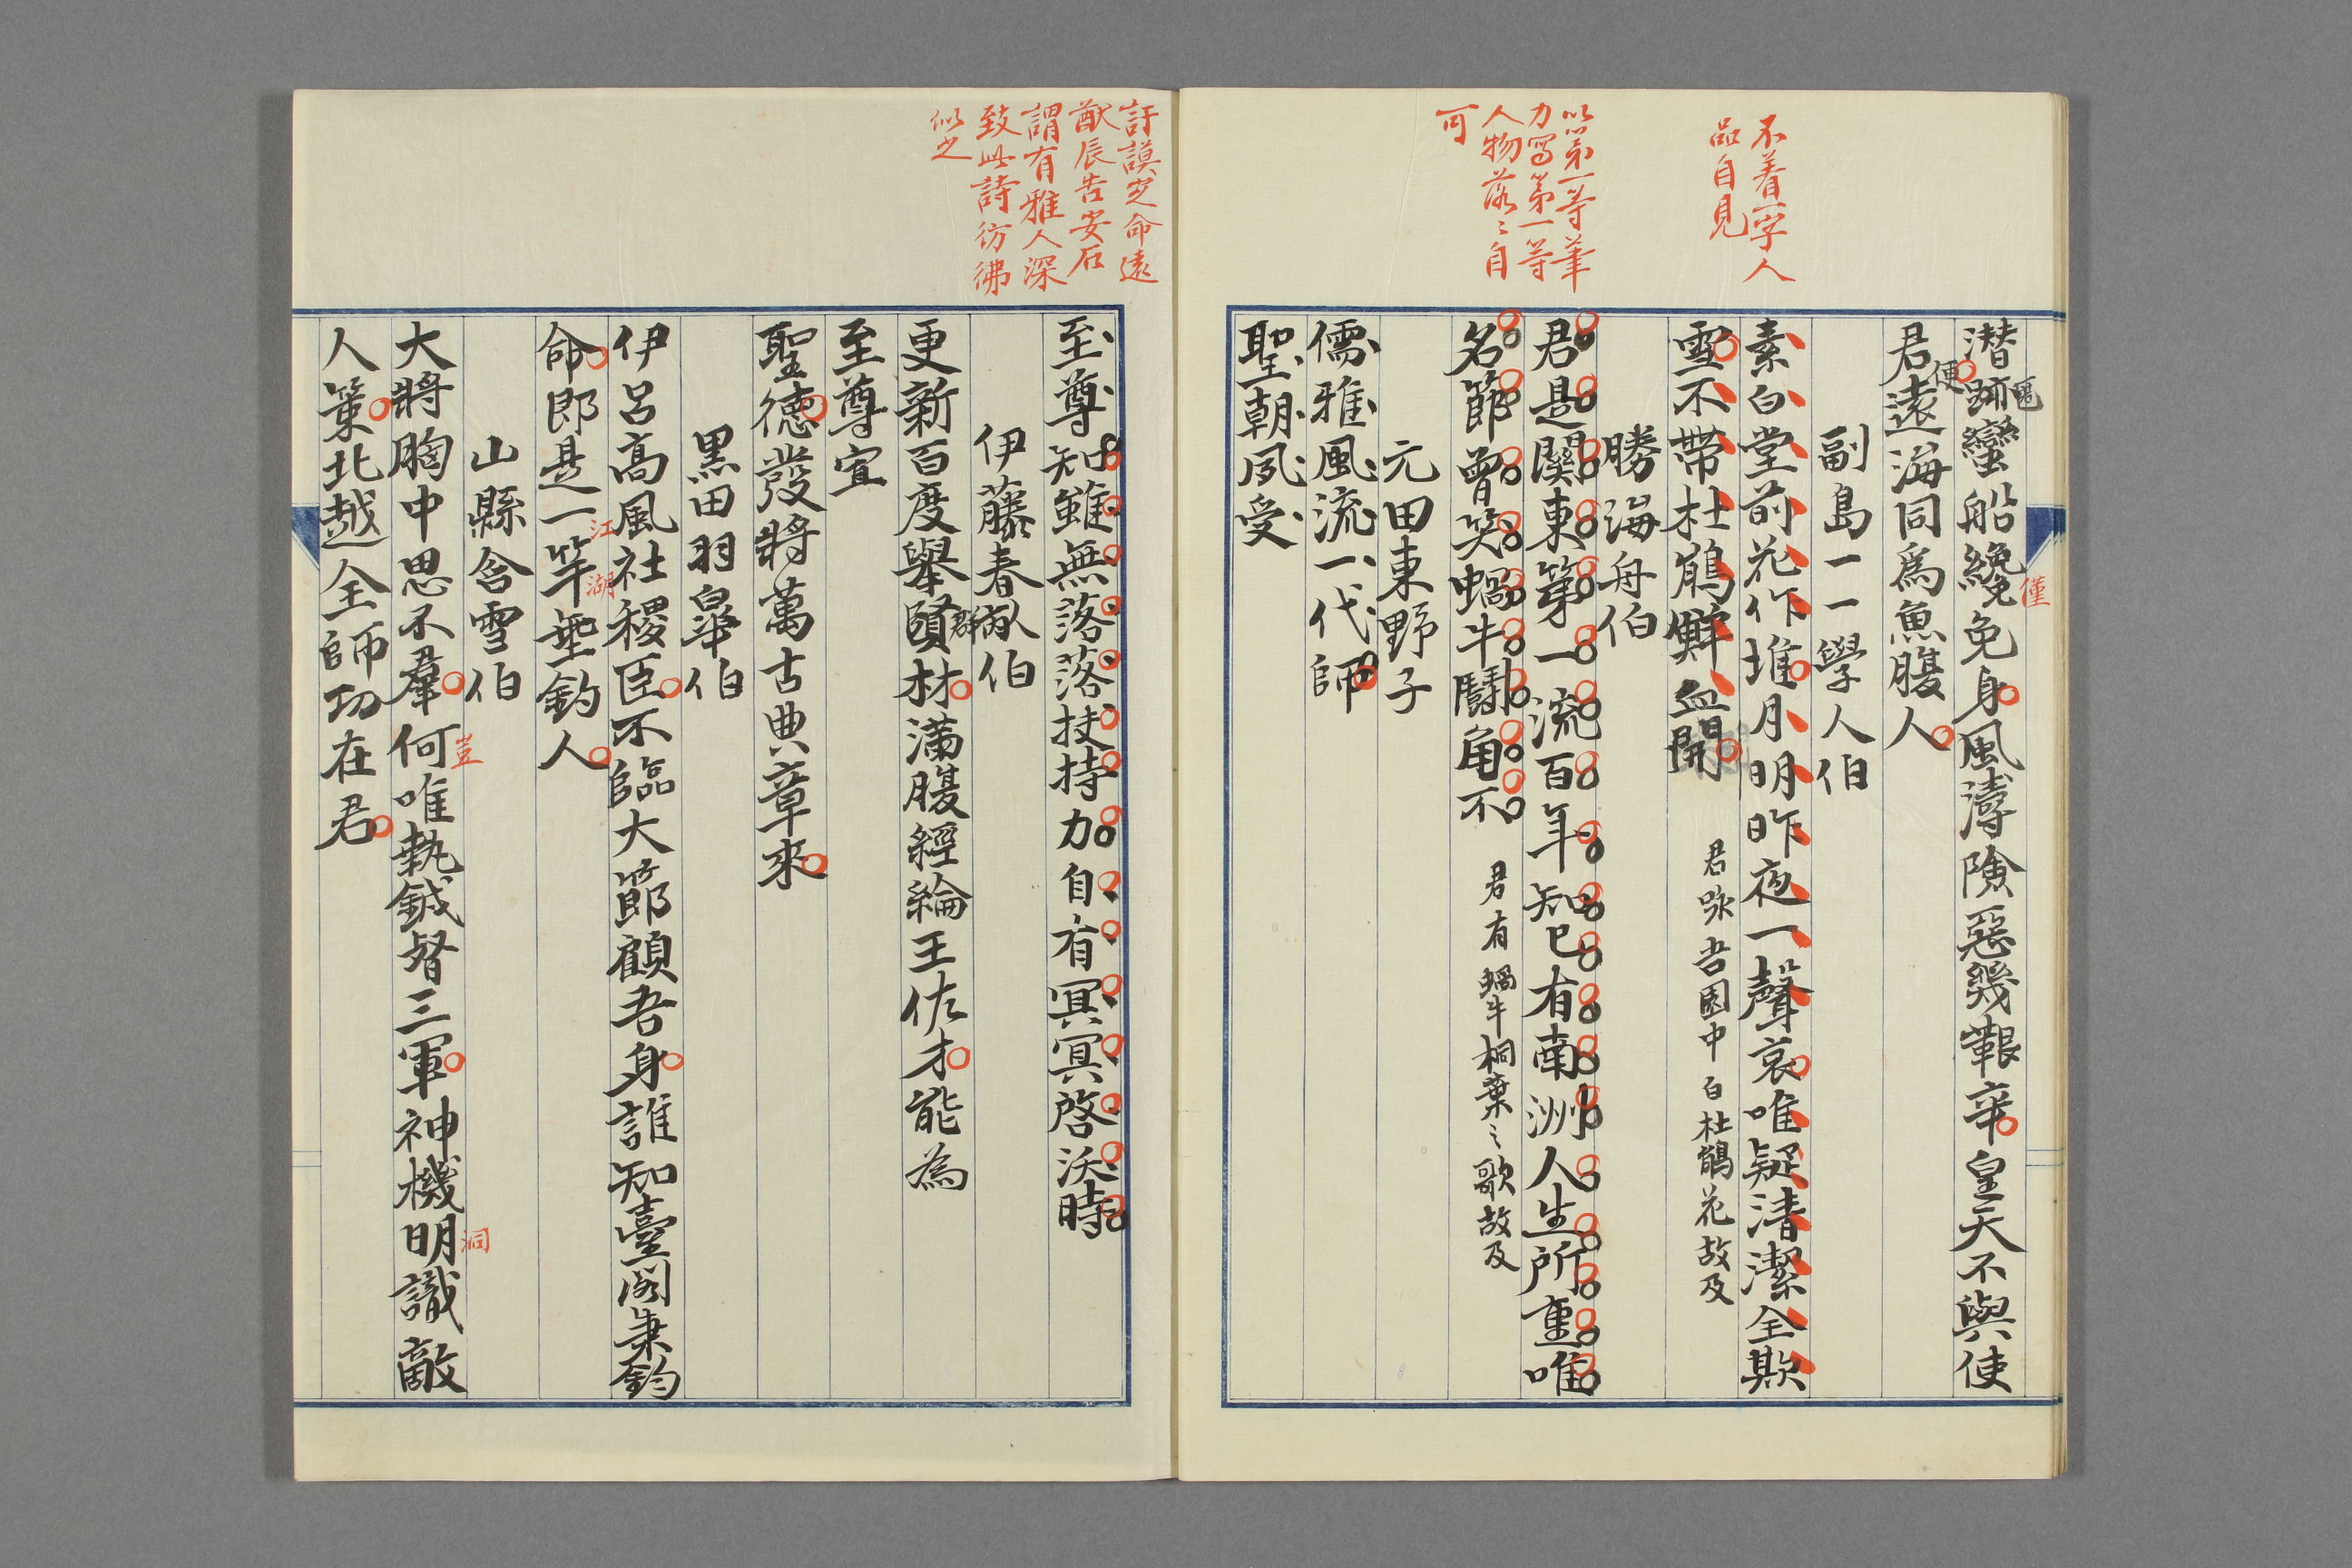 不着一字人
品自見
以第一等筆
力寫第一等
人物落々自
可
潛跡蠻船纔免身風濤險惡幾艱辛皇天不與使
竄
僅
便
君遠海同爲魚腹人
副島一一學人伯
素白堂前花作堆月明昨夜一聲哀唯疑清潔全欺
雪不帶杜鵑鮮血開 君咏吾園中白杜鵑花故及
勝海舟伯
君是關東第一流百年知已有南洲人生所重唯
名節曾笑蝸牛鬪角不 君有蝸牛桐葉之歌故及
元田東野子
儒雅風流一代師
聖朝夙受
訏謨定命遠
猷辰告安石
謂有雅人深
致此詩彷彿
似之
至尊知雖無落落扶持力自有冥冥啓沃時
伊藤春畝伯
更新百度舉賢材滿腹經綸王佐才能為
群
至尊宣
聖德發將萬古典章來
黒田羽皐伯
伊呂高風社稷臣不臨大節顧吾身誰知臺閣秉鈞
命即是一竿垂釣人
江
湖
山縣含雪伯
大將胸中思不羣何唯執鉞督三軍神機明識敵
豈
洞
人策北越全師功在君